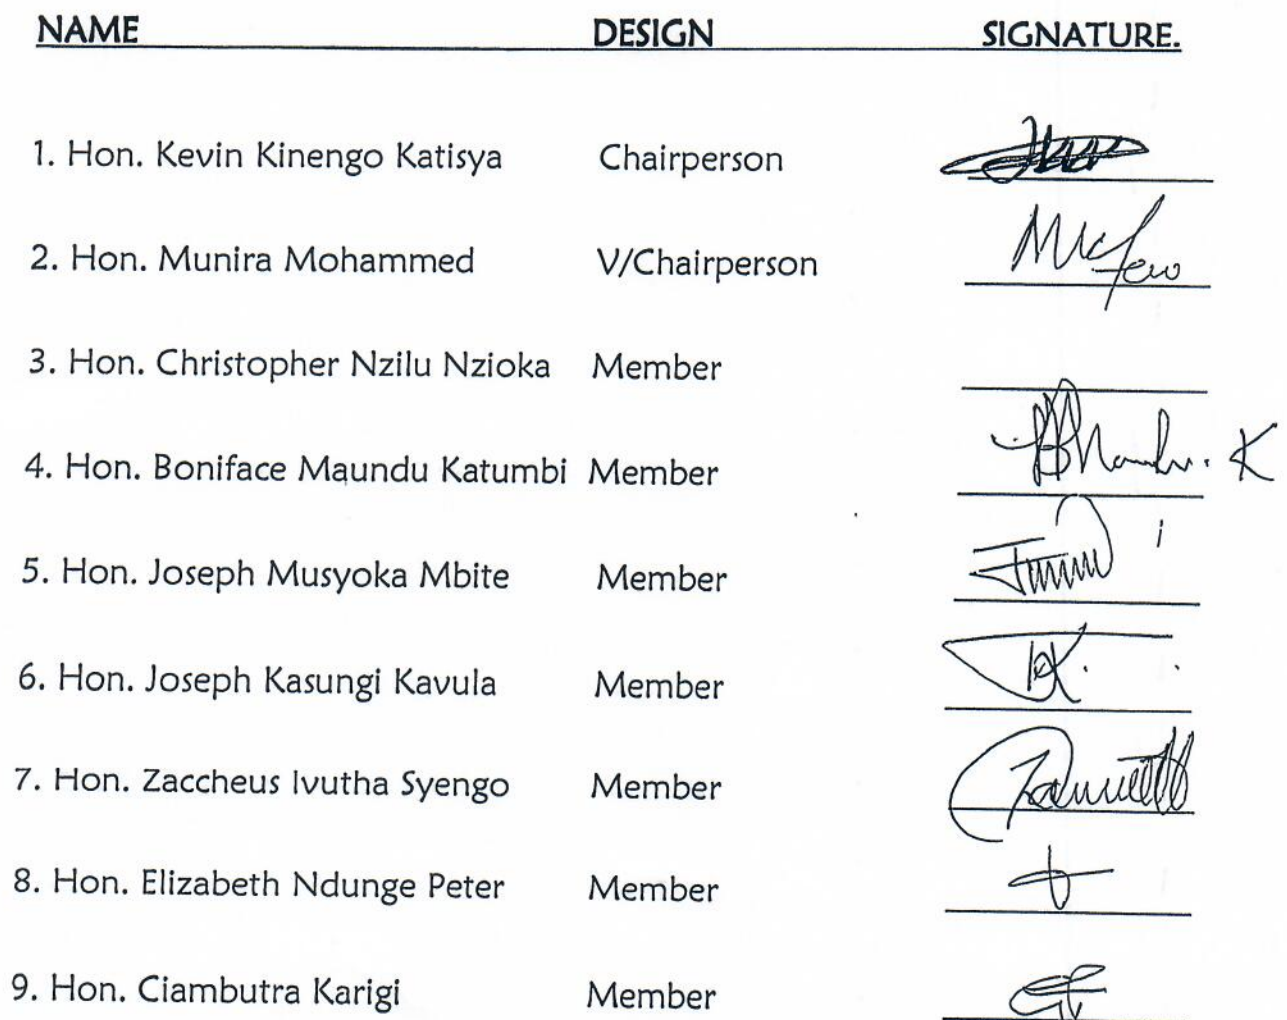 NAME DESIGN SIGNATURE.
1. Hon. Kevin Kinengo Katisya Chairperson
2. Hon. Munira Mohammed V/Chairperson
3. Hon. Christopher Nzilu Nzioka Member
4. Hon. Boniface Maundu Katumbi Member
5. Hon. Joseph Musyoka Mbite Member
6. Hon. Joseph Kasungi Kavula Member
7. Hon. Zaccheus Ivutha Syengo Member
8. Hon. Elizabeth Ndunge Peter Member
9. Hon. Ciambutra Karigi Member